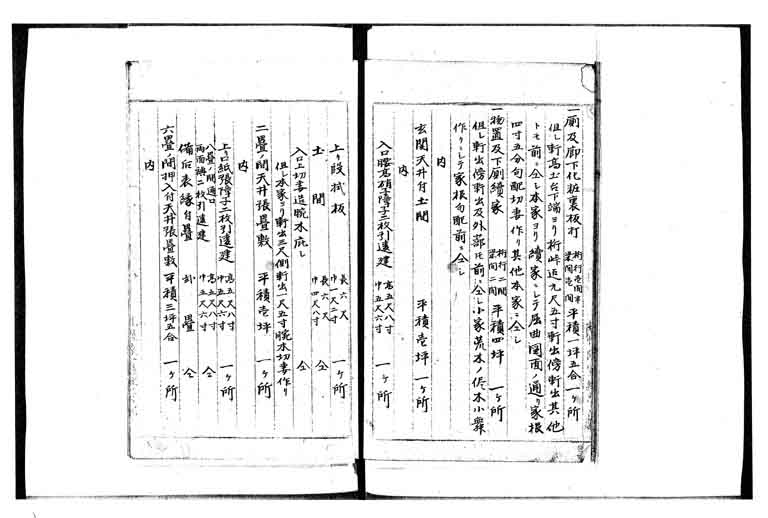 一廁及廊下化粧裏板打 桁行壱間半 梁間壱間 平積一坪五合 一ヶ所
但シ軒高土台下端ヨリ桁峠迄九尺五寸軒出傍軒出其他
トモ前ニ仝シ本家ヨリ續家ニシテ屈曲図面ノ通リ家根
四寸五分勾配切妻作リ其他本家ニ仝シ
一物置及下廁續家 桁行二間 梁間二間 平積四坪 一ヶ所
但シ軒出傍軒出及外部モ前ニ仝シ小家荒木ノ
作リニシテ家根勾配前ニ仝シ
内
玄関天井付土間 平積壱坪 一ヶ所
内
入口腰高硝子障子二枚引違建 高五尺八寸 巾五尺六寸 仝
一ヶ所
上リ段拭板 長六尺 巾一尺二寸 一ヶ所
土間 長六尺 巾四尺八寸 仝
入口上切妻造腕木庇シ 仝
但シ本家ヨリ軒出三尺側軒出一尺五寸腕木切妻作リ
二畳ノ間天井張畳敷 平積壱坪 一ヶ所
内
上リ口紙張障子二枚引違建 高五尺八寸 巾五尺六寸 一ヶ所
八畳ノ間通口両面襖二枚引違建 高五尺八寸 巾五尺六寸 仝
備后表縁付畳 弐畳 仝
六畳ノ間押入付天井張畳敷 平積三坪五合 一ヶ所
内